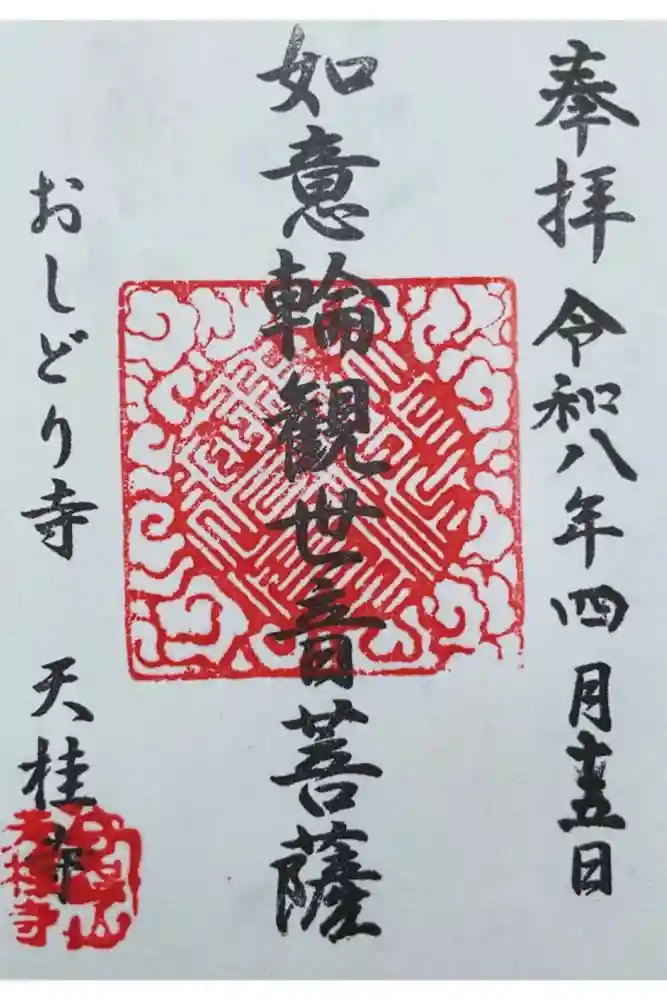 奉拝 令和八年四月十五日
如意輪観世音菩薩
おしどり寺 天桂寺
天桂寺